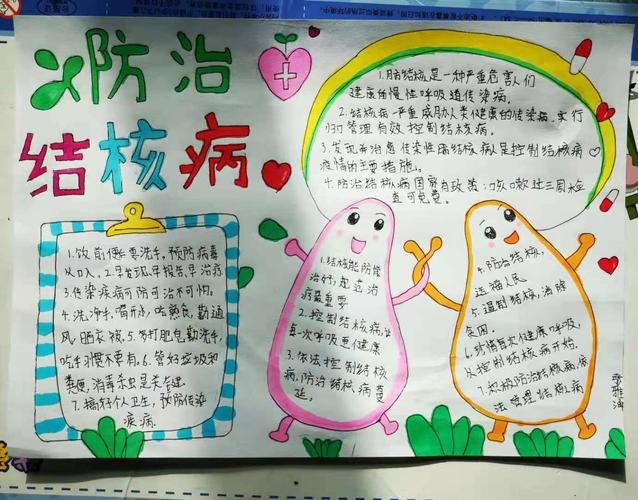 防治
结核病
1.肺结核是一种严重危害人们
健康的慢性呼吸道传染病。
2.结核病严重威胁人类健康的传染病,实行
归口管理有效控制结核病。
3.发现并治愈传染性肺结核病人是控制结核病
疫情的主要措施。
4.防治结核病国家有政策:咳嗽过三周检
查可免费。
1.饭前便后要洗手,预防病毒
从口入。2.早发现早报告,早治疗
3.传染疾病可防可治不可怕。
4.洗净手,喝开水,吃熟食,勤通
风,晒衣被。5.多打肥皂勤洗手,
吃手习惯不要有。6.管好垃圾和
粪便,消毒杀虫是关键。
7.搞好个人卫生,预防传染
疾病。
1.结核能防能
治好,规范治
疗最重要
2.控制结核病,让
每一次呼吸更健康
3.依法控制结核
病,防治结核病蔓
延。
4.防治结核,
造福人民
5.遏制结核,消除
贫困。
6.珍惜每次健康呼吸,
从控制结核病开始
7.积极防治结核病,依
法管理结核病